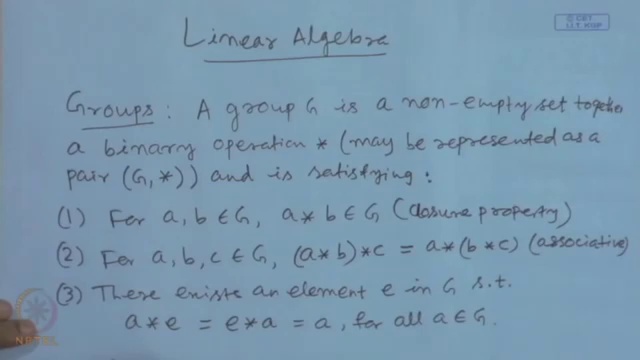 © CET
I.I.T. KGP
Linear Algebra
Groups: A group G is a non-empty set together
a binary operation * (may be represented as a
pair (G, *)) and is satisfying:
(1) For a, b ∈ G, a * b ∈ G (closure property)
(2) For a, b, c ∈ G, (a * b) * c = a * (b * c) (associative)
(3) There exists an element e in G s.t.
a * e = e * a = a, for all a ∈ G.
NPTEL